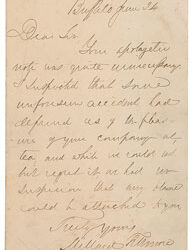 Buffalo Jan 24
Dear Sir
Your apologetic
note was quite unnecessary.
I suspected that some
unforseen accident had
deprived us of the pleas-
ure of your company at
tea and while we could not
but regret it we had no
suspicion that any blame
could be attached to you
Truly yours
Millard Fillmore